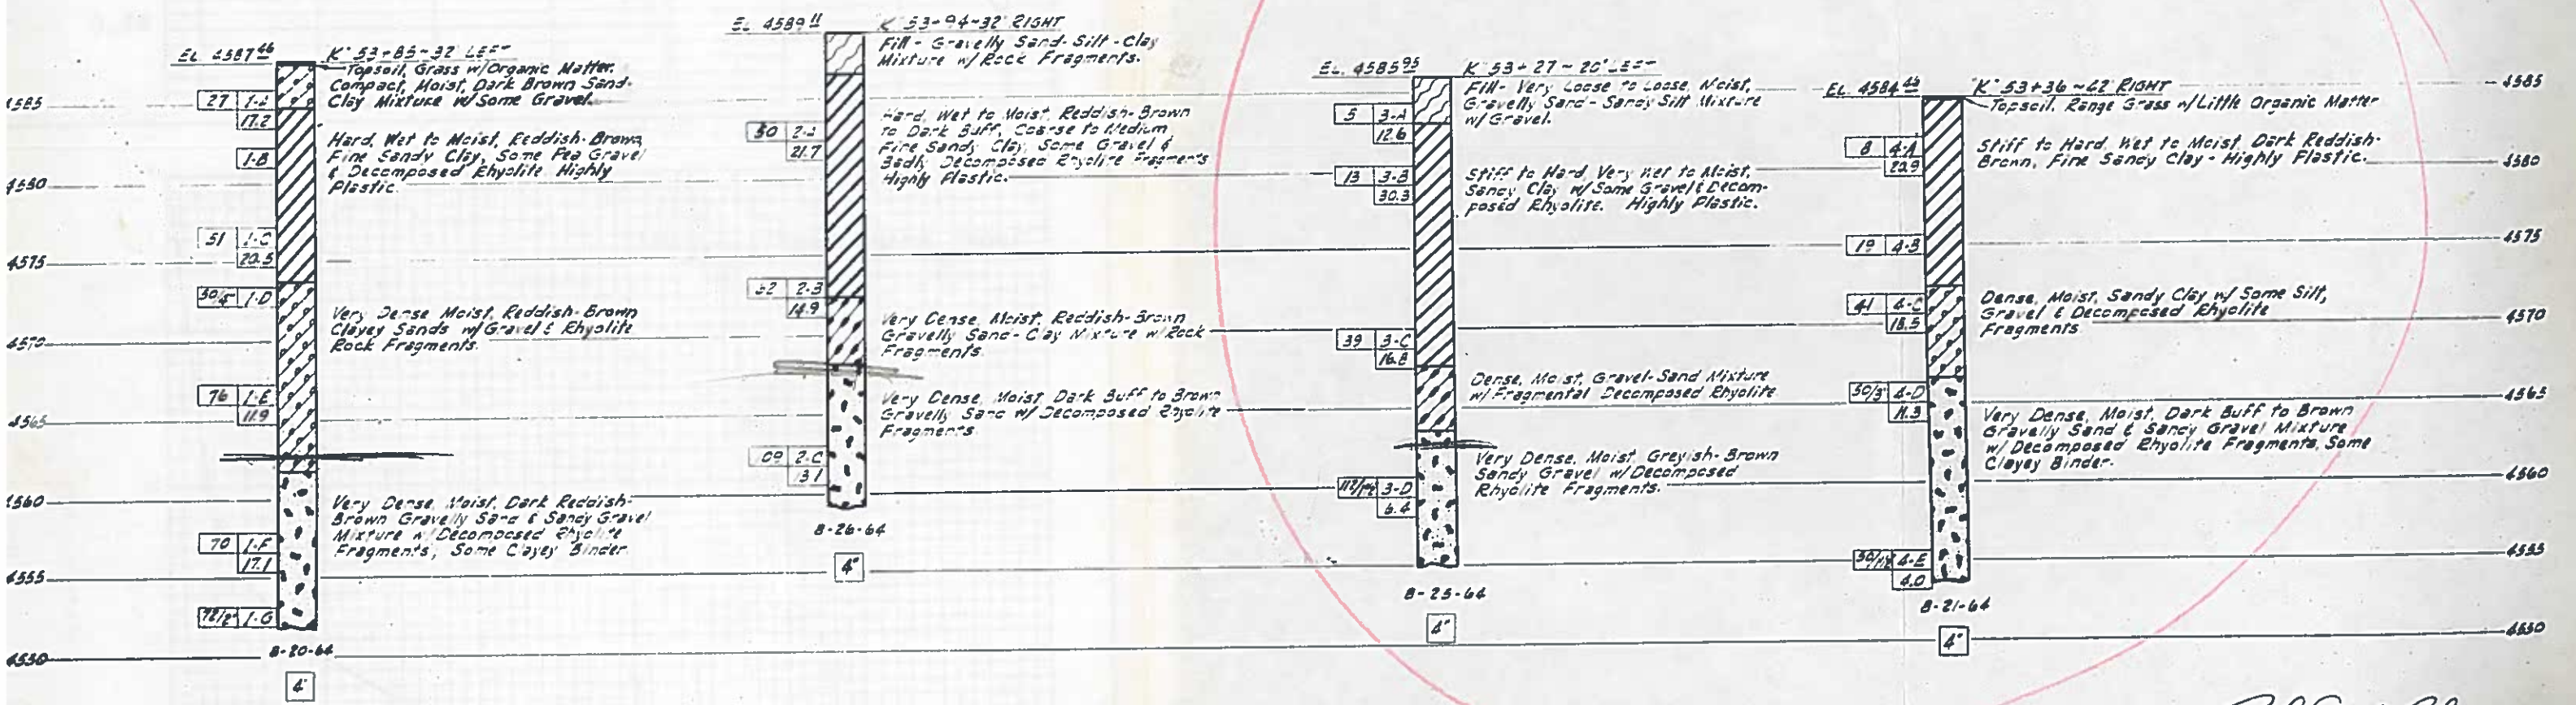 EL 4587 46
"K" 53+85~32' LEFT
Topsoil, Grass w/Organic Matter.
Compact, Moist, Dark Brown Sand-
Clay Mixture w/Some Gravel.
27 1-A
17.2
1-B
Hard, Wet to Moist, Reddish-Brown,
Fine Sandy Clay, Some Pea Gravel
& Decomposed Rhyolite Highly
Plastic.
51 1-C
20.5
1-D
Very Dense Moist, Reddish-Brown
Clayey Sands w/Gravel & Rhyolite
Rock Fragments.
76 1-E
11.9
Very Dense, Moist, Dark Reddish-
Brown Gravelly Sand & Sandy Gravel
Mixture w/Decomposed Rhyolite
Fragments, Some Clayey Binder.
70 1-F
17.1
1-G
8-20-64
4"
EL 4589 11
"K" 53+94~32' RIGHT
Fill - Gravelly Sand-Silt-Clay
Mixture w/Rock Fragments.
50 2-A
21.7
Hard, Wet to Moist, Reddish-Brown
to Dark Buff, Coarse to Medium
Fine Sandy Clay, Some Gravel &
Badly Decomposed Rhyolite Fragments
Highly Plastic.
2-B
14.9
Very Dense, Moist, Reddish-Brown
Gravelly Sand-Clay Mixture w/Rock
Fragments.
Very Dense, Moist Dark Buff to Brown
Gravelly Sand w/Decomposed Rhyolite
Fragments
2-C
8-26-64
4"
EL. 4585 95
"K" 53+27~20' LEFT
Fill- Very Loose to Loose, Moist,
Gravelly Sand-Sandy Silt Mixture
w/Gravel.
5 3-A
12.6
13 3-B
30.3
Stiff to Hard, Very Wet to Moist,
Sandy Clay w/Some Gravel & Decom-
posed Rhyolite. Highly Plastic.
39 3-C
16.8
Dense, Moist, Gravel-Sand Mixture
w/Fragmental Decomposed Rhyolite
Very Dense, Moist, Greyish-Brown
Sandy Gravel w/Decomposed
Rhyolite Fragments.
3-D
6.4
8-25-64
4"
EL. 4584 45
"K" 53+36~62' RIGHT
Topsoil, Range Grass w/Little Organic Matter
8 4-A
Stiff to Hard, Wet to Moist, Dark Reddish-
Brown, Fine Sandy Clay - Highly Plastic.
19 4-B
41 4-C
18.5
Dense, Moist, Sandy Clay w/ Some Silt,
Gravel & Decomposed Rhyolite
Fragments
50/3" 4-D
11.3
Very Dense, Moist, Dark Buff to Brown
Gravelly Sand & Sandy Gravel Mixture
w/Decomposed Rhyolite Fragments, Some
Clayey Binder.
4-E
4.0
8-21-64
4"
4585
4580
4575
4570
4565
4560
4555
4550
4585
4580
4575
4570
4565
4560
4555
4550